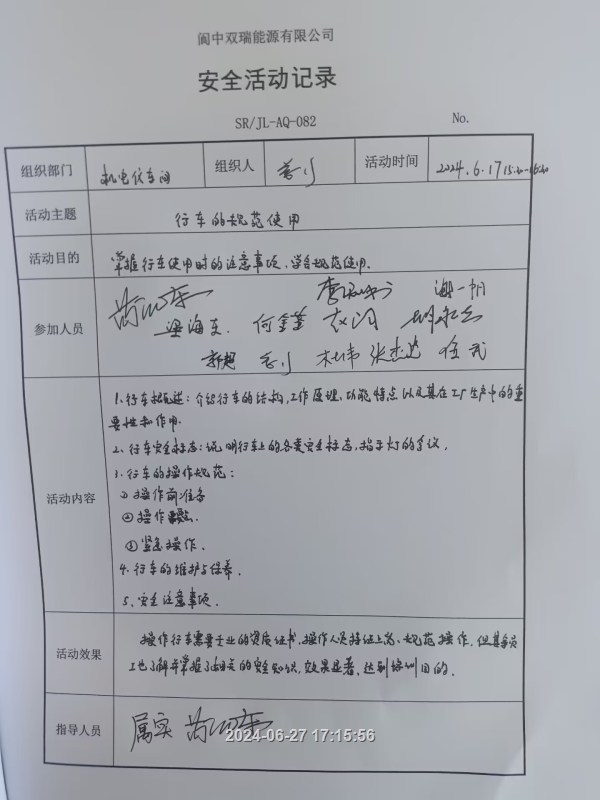 阆中双瑞能源有限公司
安全活动记录
SR/JL-AQ-082 No.
组织部门 机电仪车间 组织人 活动时间 2024.6.17 15:20-16:20
活动主题 行车的规范使用
活动目的 掌握行车使用时的注意事项、学会规范使用.
参加人员
梁海东. 何金奎
郭超 杜伟 张杰
活动内容
1.行车概述：介绍行车的结构,工作原理、功能特点以及其在工厂生产中的重
要性和作用.
2、行车安全标志：说明行车上的各类安全标志,指示灯的含义.
3.行车的操作规范：
①操作前准备
②操作.
③紧急操作.
4.行车的维护与保养.
5、安全注意事项.
活动效果 操作行车需要专业的资质证书,操作人员持证上岗、规范操作.但其余员
工也了解并掌握了相关的安全知识,效果显著,达到培训目的.
指导人员 属实
2024-06-27 17:15:56